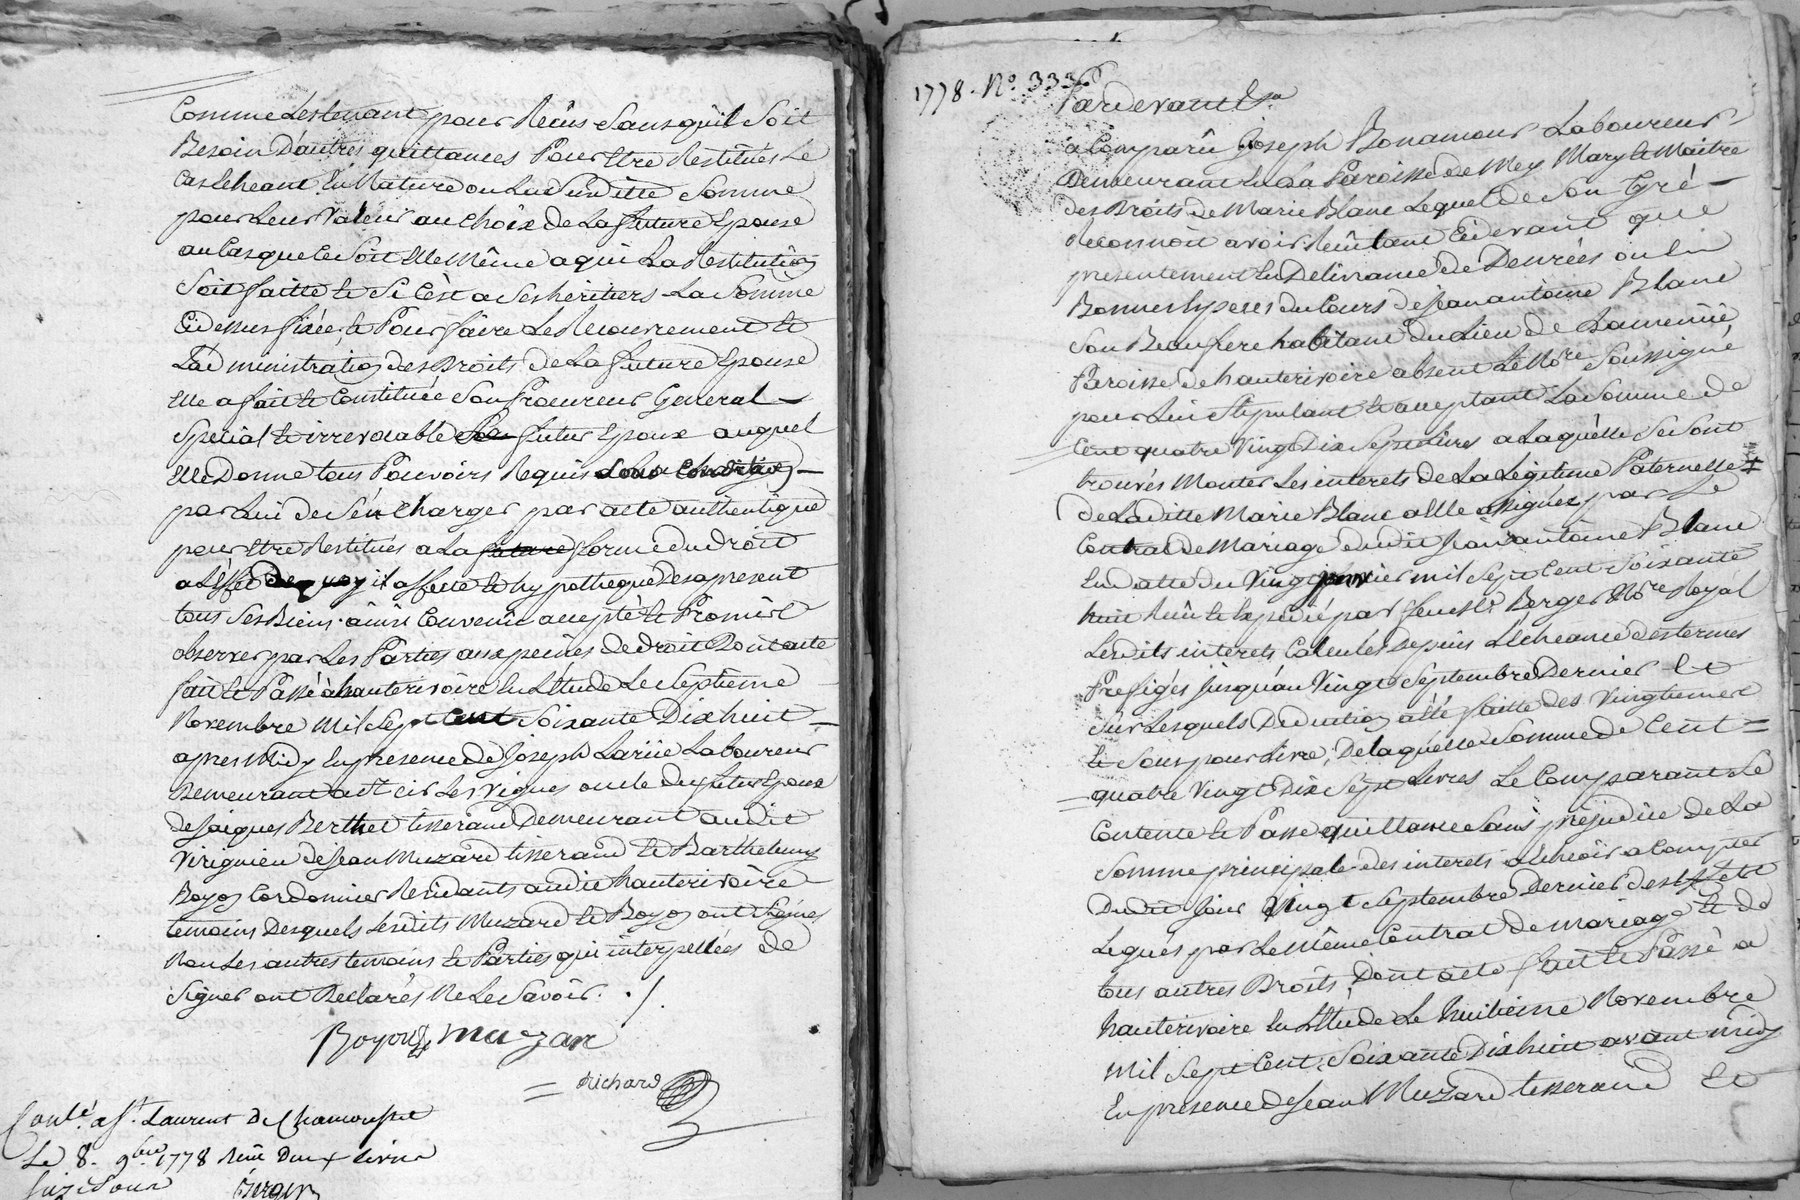 Comme des tenant pour Reçus Sans qu'il Soit
Besoin D'autres quittances Pour Etre Restitués Le
Cas Echeant En Nature ou En Susditte Somme
pour Leur Valeur au Choix de La future Epouse
au Cas que Ce Soit Elle Même a qui La Restitution
Soit faitte et Si C'est a Ses héritiers La Somme
Cidessus fixée, et Pour faire Le Recouvrement et
L'administration des Droits de La future Epouse
Elle a fait et Constitué Son Procureur General
Special et irrevocable futur Epoux auquel
Elle Donne tous Pouvoirs Requis
par Lui de S'en Charger par acte authentique
pour Etre Restitués a La forme du Droit
a L'effet de quoy il affecte et hypotheque Des apresent
tous Ses Biens ainsi Convenû accepté et Promis
observer par Les Parties aux peines de droit Dont acte
fait et Passé à hauterivoire En L'Etude Le Septieme
Novembre Mil Sept Cent Soixante Dix huit
apres Midy En presence de Joseph Lariie Laboureur
Demeurant a St Cir Les Vignes oncle du futur Epoux
de Jacques Berthet tisserand Demeurant audit
Virignieu de Jean Muzard tisserand et Barthelemy
Boyon Cordonnier Residants audit hauterivoire
temoins Desquels Lesdits Muzard et Boyon ont Signés
Non Les autres temoins et Parties qui interpellées de
Signer ont Declarés Ne Le Savoir. ./.
Boyon muzar
Richard
Conlé. a St. Laurent De Chamousset
Le 8. 9bre 1778 Reçu Deux livres
Six Sous Berger
1778. No. 333
Pardevant
a Comparû Joseph Bonamour Laboureur
Demeurant En La Paroisse de Mey Mary et Maitre
des Droits de Marie Blanc Lequel de Son Gré
Reconnoit avoir Reçû tant Cidevant que
presentement En Delivrance de Denrées ou En
Bonnes Especes du Cours de Jean antoine Blanc
Son Beaufrere habitant du Lieu de
Paroisse de hauterivoire absent Le Nore Soussigné
pour Lui Stipulant et acceptant La Somme de
Cent quatre Vingt Dix Sept Livres a Laquelle Se Sont
trouvés Monter Les interets de La Legitime Paternelle
de Laditte Marie Blanc a Elle assignez par Le
Contrat de Mariage dudit Jean antoine Blanc
En datte du Vingt janvier mil Sept Cent Soixante
huit Reçû et Expedié par feu Me. Berger Nore Royal
Lesdits interets Calculés Depuis L'Echeance des termes
Prefigés Jusqu'au Vingt Septembre Dernier Et
Sur Lesquels Deduction a été faitte des Vingtiemes
et Sous pour Livre, De laquelle Somme de Cent
quatre Vingt Dix Sept Livres Le Comparant Se
Contente et Passe quittance Sans prejudice de La
Somme principale des interets a Echeoir a Compter
Dudit Jour Vingt Septembre Dernier
Legués par Le Même Contrat de mariage et de
tous autres Droits, Dont acte fait et Passé a
hauterivoire En L'Etude Le huitieme Novembre
Mil Sept Cent Soixante Dix huit avant midy
En presence de Jean Muzard tisserand Et